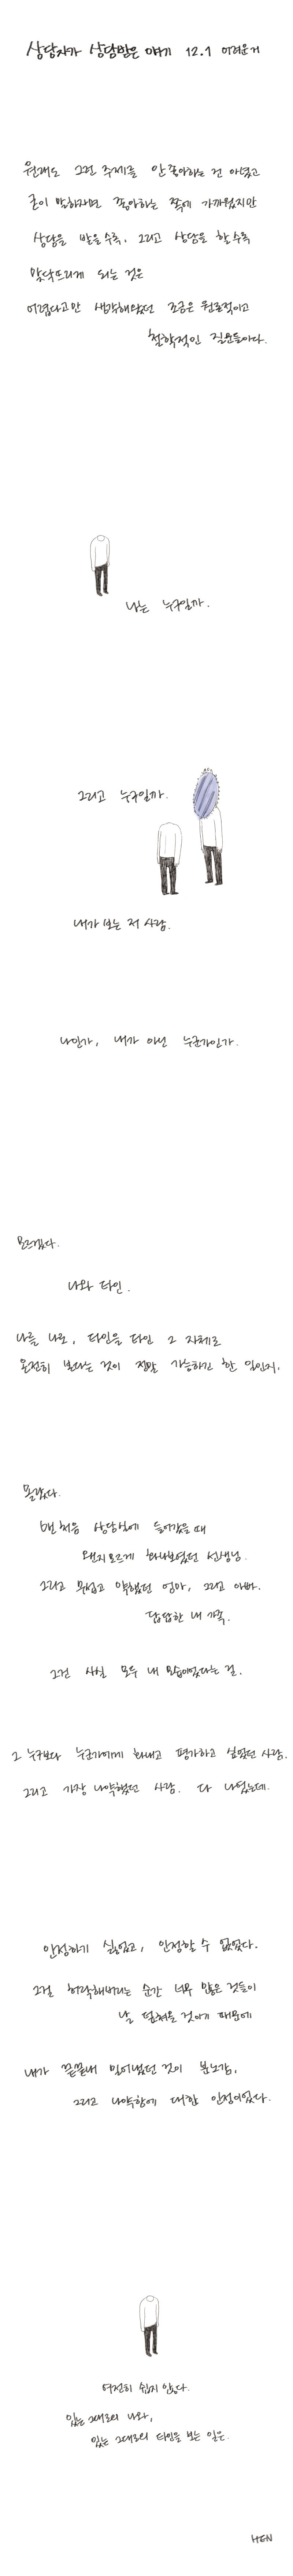 상담자가 상담받은 이야기 12.1 어려운 거
원래도 그런 주제를 안 좋아하는 건 아녔고
굳이 말하자면 좋아하는 쪽에 가까웠지만
상담을 받을수록, 그리고 상담을 할수록
맞닥뜨리게 되는 것은
어렵다고만 생각해왔던 조금은 원론적이고
철학적인 질문들이다.
나는 누구일까.
그리고 누구일까.
내가 보는 저 사람.
나인가, 내가 아닌 누군가인가.
모르겠다.
나와 타인.
나를 나로, 타인을 타인 그 자체로
온전히 본다는 것이 정말 가능하긴 한 일인지.
몰랐다.
맨 처음 상담실에 들어갔을 때
왠지 모르게 화나보였던 선생님.
그리고 무섭고 약했던 엄마, 그리고 아빠.
답답한 내 가족.
그건 사실 모두 내 모습이었다는 걸.
그 누구보다 누군가에게 화내고 평가하고 싶었던 사람.
그리고 가장 나약했던 사람. 다 나였는데.
인정하기 싫었고, 인정할 수 없었다.
그걸 허락해버리는 순간 너무 많은 것들이
날 덮쳐올 것이기 때문에
내가 끝끝내 밀어냈던 것이 분노감,
그리고 나약함에 대한 인정이었다.
여전히 쉽지 않다.
있는 그대로의 나와,
있는 그대로의 타인을 보는 일은.
HEN